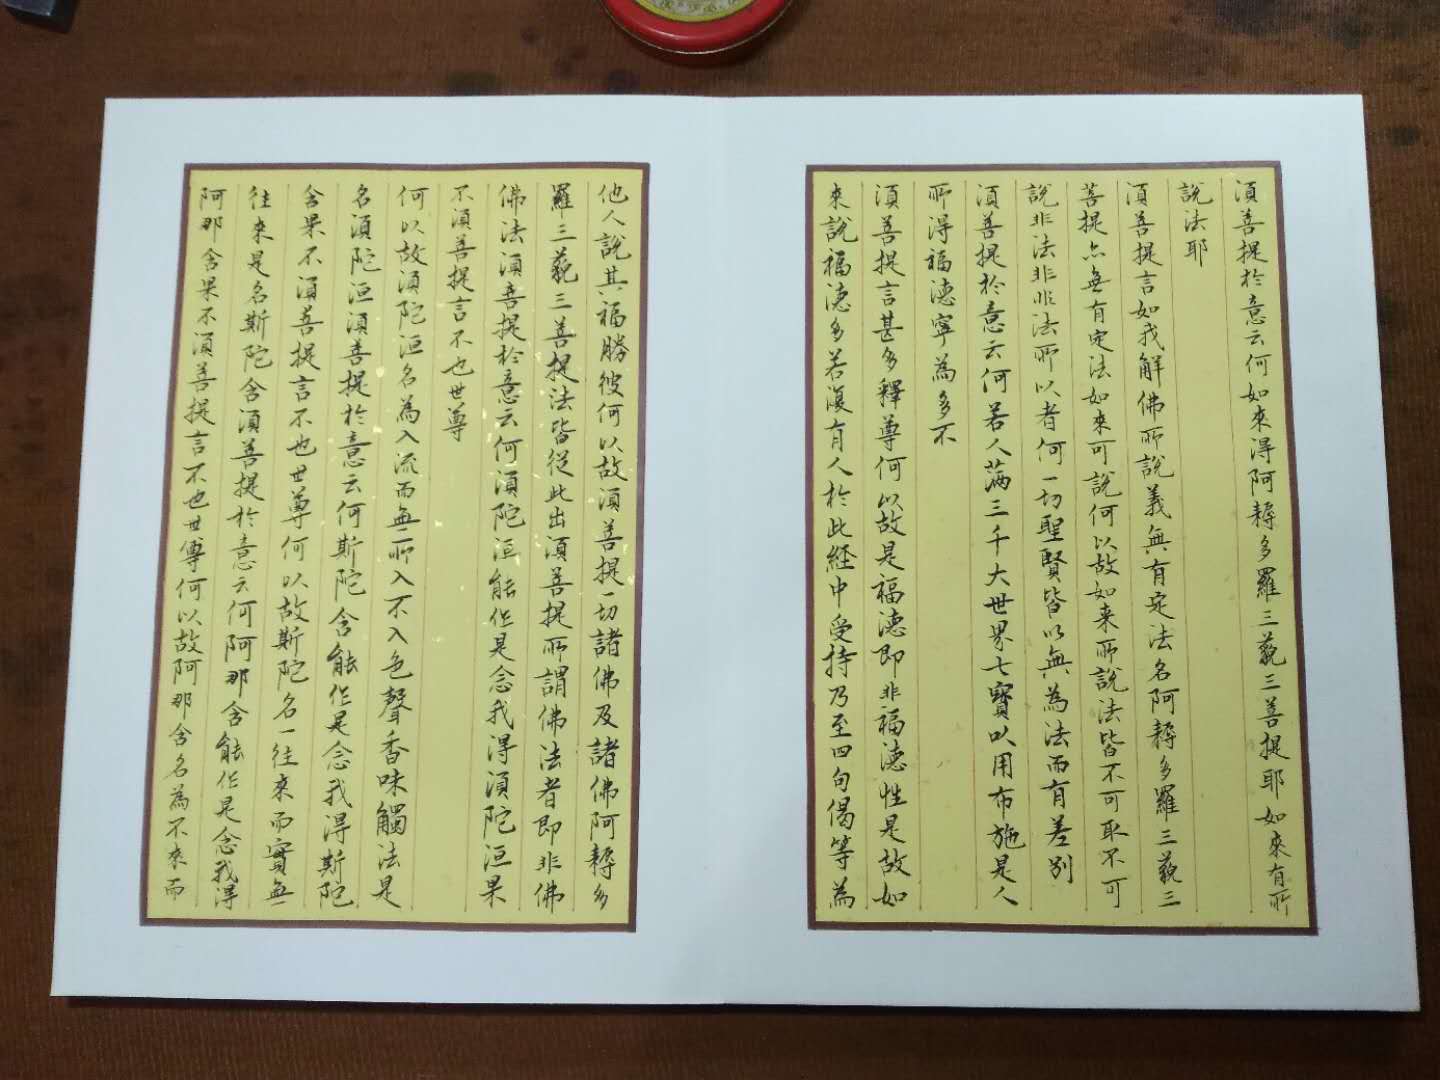 須菩提於意云何如來得阿耨多羅三藐三菩提耶如來有所
說法耶
須菩提言如我解佛所說義無有定法名阿耨多羅三藐三
菩提亦無有定法如來可說何以故如来所說法皆不可取不可
說非法非非法所以者何一切聖賢皆以無為法而有差別
須菩提於意云何若人滿三千大世界七寶以用布施是人
所得福德寧為多不
須菩提言甚多釋尊何以故是福德即非福德性是故如
来說福德多若復有人於此經中受持乃至四句偈等為
他人說其福勝彼何以故須菩提一切諸佛及諸佛阿耨多
羅三藐三菩提法皆從此出須菩提所謂佛法者即非佛
佛法須菩提於意云何須陀洹能作是念我得須陀洹果
不須菩提言不也世尊
何以故須陀洹名為入流而無所入不入色聲香味觸法是
名須陀洹須菩提於意云何斯陀含能作是念我得斯陀
含果不須菩提言不也世尊何以故斯陀名一往來而實無
往來是名斯陀含須菩提於意云何阿那含能作是念我得
阿那含果不須菩提言不也世尊何以故阿那含名為不來而